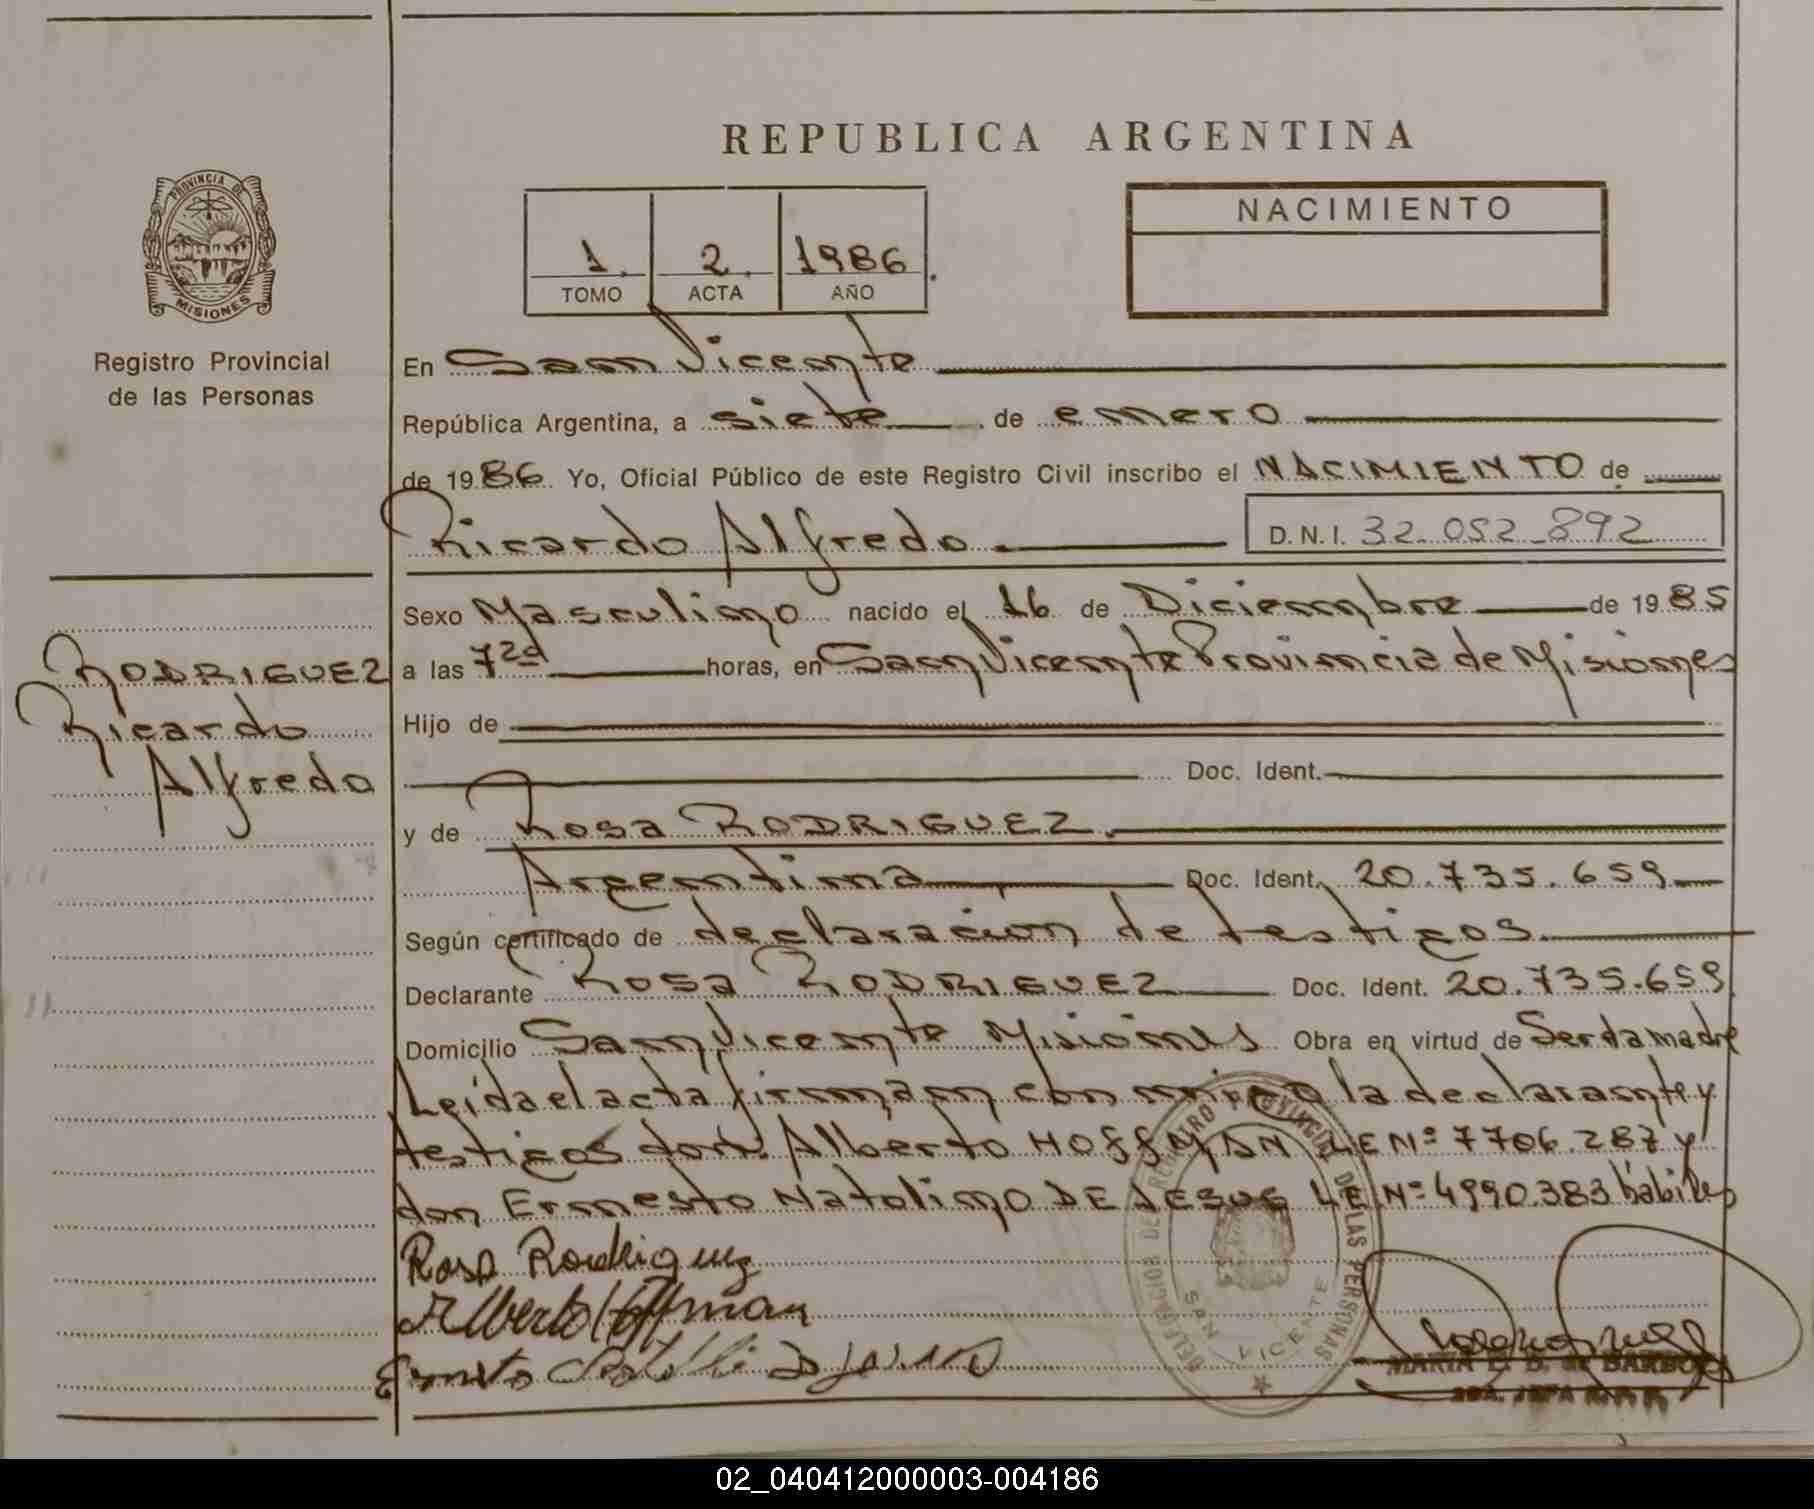 REPUBLICA ARGENTINA
PROVINCIA DE
MISIONES
Registro Provincial
de las Personas
1 2 1986
TOMO ACTA AÑO
NACIMIENTO
En San Vicente
República Argentina, a siete de enero
de 1986 Yo, Oficial Público de este Registro Civil inscribo el NACIMIENTO de
Ricardo Alfredo D.N.I. 32.052.892
Sexo Masculino nacido el 16 de Diciembre de 1985
RODRIGUEZ
Ricardo
Alfredo
a las 7 horas, en San Vicente Provincia de Misiones
Hijo de
Doc. Ident.
y de Rosa RODRIGUEZ
Argentina Doc. Ident. 20.735.659
Según certificado de declaración de testigos
Declarante Rosa RODRIGUEZ Doc. Ident. 20.735.659
Domicilio San Vicente Misiones Obra en virtud de Ser la madre
Leída el acta firman con migo la declarante y
testigos don. Alberto HOFFMAN LE Nº 7706.287 y
don Ernesto Natolino DE JESUS LE Nº 4990.383 hábiles
Rosa Rodriguez
Alberto Hoffman
DELEGACION DEL REGISTRO PROVINCIAL DE LAS PERSONAS
SAN VICENTE
MARIA E. B. de BARBOZA
02_040412000003-004186